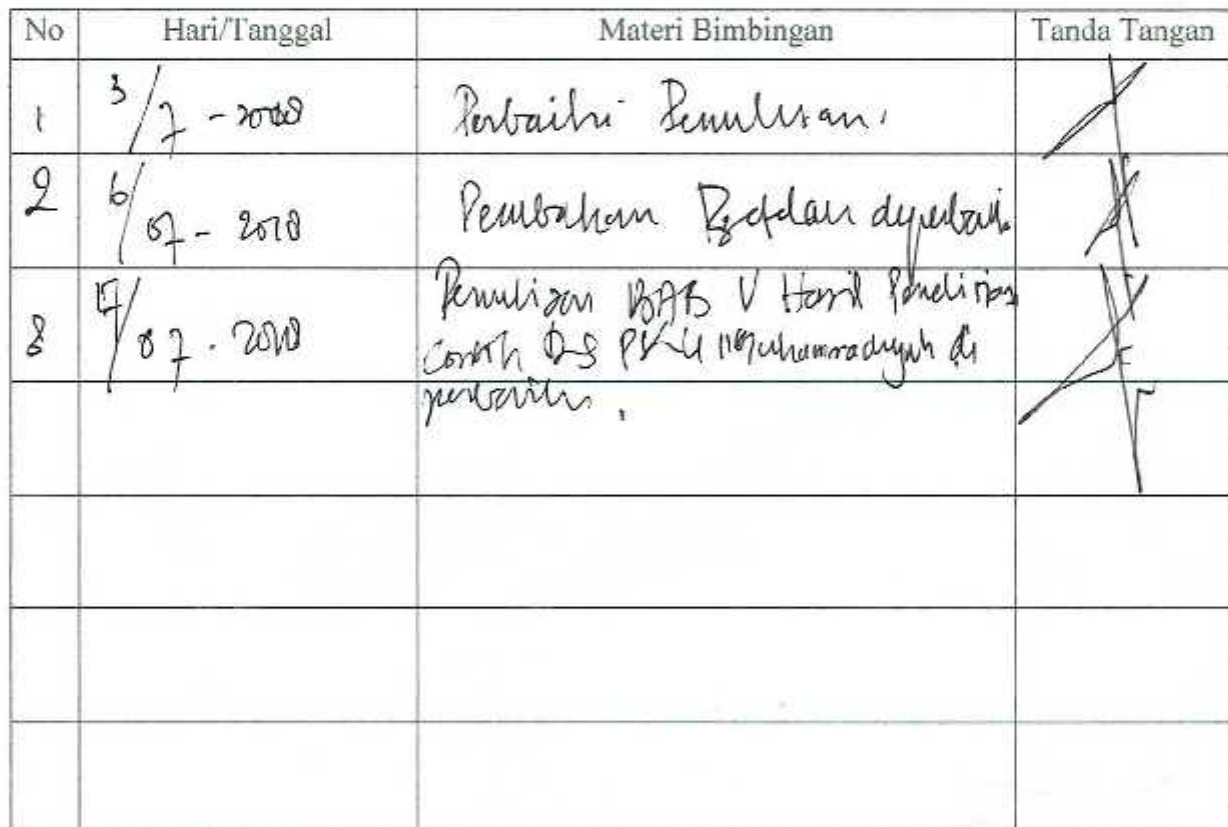 No Hari/Tanggal Materi Bimbingan Tanda Tangan
1 3/7 - 2018 Perbaiki Penulisan.
2 6/07 - 2018 Pembahasan diperbaiki
3 17/07 - 2018 Penulisan BAB V Hasil Penelitian
RS PKU Muhammadiyah di
perbaiki.